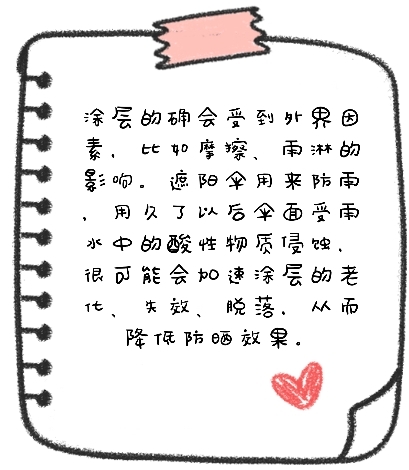 涂层的确会受到外界因
素，比如摩擦、雨淋的
影响。遮阳伞用来防雨
，用久了以后伞面受雨
水中的酸性物质侵蚀，
很可能会加速涂层的老
化、失效、脱落，从而
降低防晒效果。